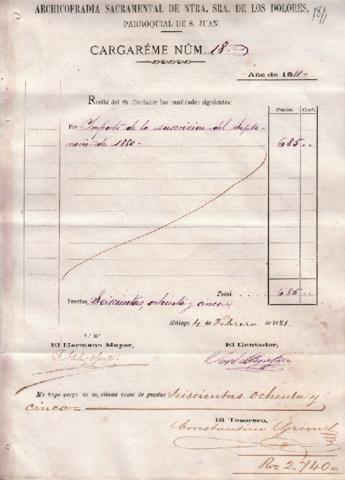 ARCHICOFRADIA SACRAMENTAL DE NTRA. SRA. DE LOS DOLORES,
PARROQUIAL DE S. JUAN.
CARGARÉME NÚM. 18
Año de 1881.
Recibí del Sr. Contador las cantidades siguientes:
Pesetas. Cents.
Por Importe de la suscricion del Septe-
nario de 1880. 685
Total 685
Pesetas, Seiscientas ochenta y cinco
Málaga 4 Febrero de 1881.
V.º B.º
El Hermano Mayor, El Contador,
Me hago cargo de la citada suma de pesetas Seiscientas ochenta y
cinco
El Tesorero,
Constantino
Rvn 2.740